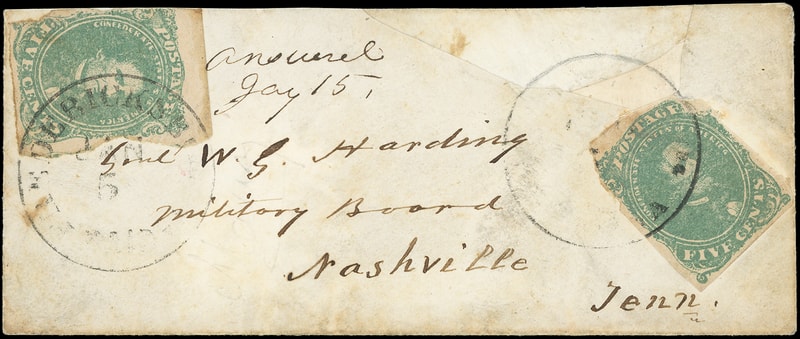 Answered
Jay 15,
Genl W. G. Harding
Military Board
Nashville
Tenn.
FIVE CE
POSTA
CONFEDERATE
AMERICA
5
POSTAGE
CONFEDERATE STATES OF AMERICA
FIVE CENTS
A